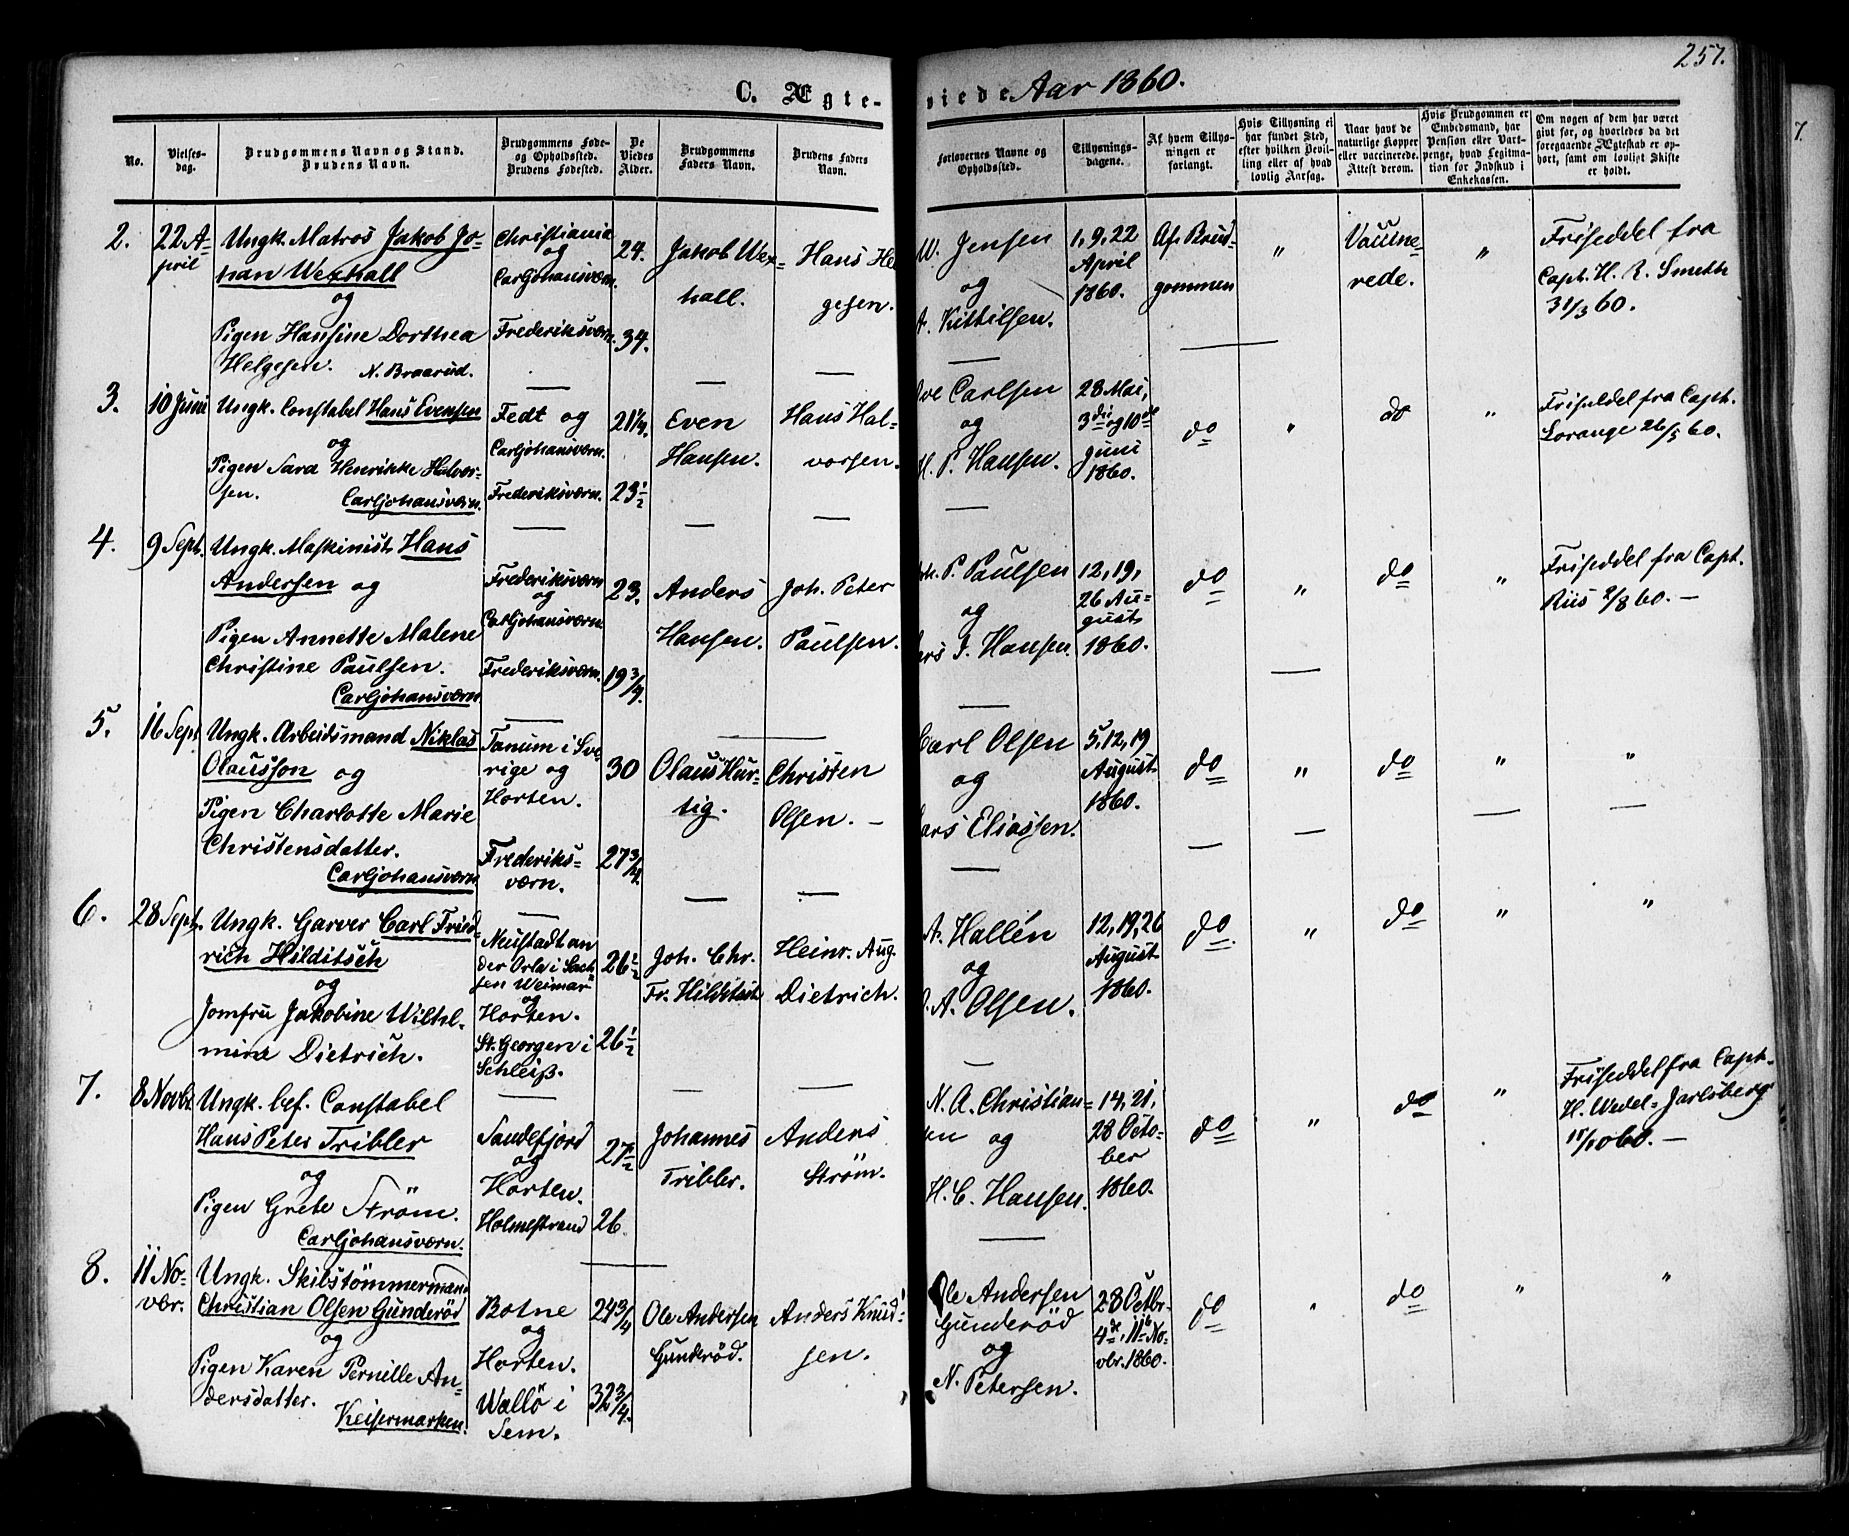 257.
C. Ægteviede Aar 1860.
No.
Vielsesdag.
Brudgommens Navn og Stand.
Brudens Navn.
Brudgommens Føde-
og Opholdssted.
Brudens Fødested.
De
Viedes
Alder.
Brudgommens
Faders Navn.
Brudens Faders
Navn.
Forlovernes Navne og
Opholdssted.
Tillysnings-
dagene.
Af hvem Tillys-
ningen er
forlangt.
Hvis Tillysning ei
har fundet Sted,
efter hvilken Bevil-
ling eller af hvad
lovlig Aarsag.
Naar havt de
naturlige Kopper
eller vaccinerede.
Attest derom.
Hvis Brudgommen er
Embedsmand, har
Pension eller Vart-
penge, hvad Legitma-
tion for Indskud i
Enkekassen.
Om nogen af dem har været
givt før, og hvorledes da det
foregaaende Ægteskab er op-
hørt, samt om lovligt Skifte
er holdt.
2.
22 A-
pril
Ungk. Matros Jakob Jo-
han Wexhall
og
Pigen Hansine Dorthea
Helgesen. N. Braarud.
Christiania
og
Carljohansværn.
Frederiksværn.
24.
34.
Jakob Wex-
hall.
Hans Hel
gesen.
W. Jensen
og
A. Kittilsen.
1, 9, 22
April
1860.
Af Brud-
gommen
"
Vaccine-
rede.
"
Friseddel fra
Capt. H. R. Smeth
31/3 60.
3.
10 Juni
Ungk. Constabel Hans Evensen
og
Pigen Sara Henrikke Halvor-
sen. Carljohansværn.
Fedt og
Carljohansværn.
Frederiksværn.
21 1/4.
23 1/2
Even
Hansen.
Hans Hal-
vorsen.
Ove Carlsen
og
H. P. Hansen.
28 Mai,
3die og 10de
Juni
1860.
do
"
do
"
Friseddel fra Capt.
Lorange 26/5 60.
4.
9 Sept.
Ungk. Maskinist Hans
Andersen og
Pigen Annette Malene
Christine Paulsen.
Carljohansværn
Frederiksværn
og
Carljohansværn
Frederiksværn.
23.
19 3/4.
Anders
Hansen.
Joh. Peter
Paulsen.
P. Paulsen
og
Hansen.
12, 19,
26 Au-
gust
1860.
do
"
do
"
Friseddel fra Capt.
Riis 2/8 60. –
5.
16 Sept
Ungk. Arbeidsmand Niklas
Olausson og
Pigen Charlotte Marie
Christensdatter.
Carljohansværn
Tanum i Sve-
rige og
Horten.
Frederiks-
værn.
30
27 3/4.
Olaus Hur-
tig.
Christen
Olsen. –
Carl Olsen
og
Lars Eliassen.
5, 12, 19
August
1860.
do
"
do
"
"
6.
28 Sept.
Ungk. Garver Carl Fried-
rich Hilditsch
og
Jomfru Jakobine Wilhel-
mine Dietrich.
Neustadt an
der Orla i Sach-
sen Weimar
og
Horten.
St. Georgen i
Schleiß.
26 1/2
26 1/2
Joh. Chr.
Fr. Hilditsch
Heinr. Aug.
Dietrich.
A. Hallén
og
A. Olsen.
12, 19, 26
August
1860.
do
"
do
"
"
7.
8 Novbr
Ungk. bef. Constabel
Hans Peter Tribler
og
Pigen Grete Strøm.
Carljohansværn.
Sandefjord
og
Horten.
Holmestrand
27 1/2
26.
Johannes
Tribler.
Anders
Strøm.
N. A. Christian-
sen og
H. C. Hansen.
14, 21,
28 Octo-
ber
1860.
do
"
do
"
Friseddel fra Capt.
H. Wedel-Jarlsberg
15/10 60. –
8.
11 No-
vbr.
Ungk. Skibstömmermand
Christian Olsen Gunderöd
og
Pigen Karen Pernille An-
dersdatter. Keisermarken.
Botne
og
Horten.
Wallö i
Sem.
24 3/4
32 3/4.
Ole Andersen
Gunderöd.
Anders Knud-
sen.
Ole Andersen
Gunderöd
og
N. Petersen.
28 Octbr.
4de, 11te No-
vbr. 1860.
do
"
do
"
"
7.